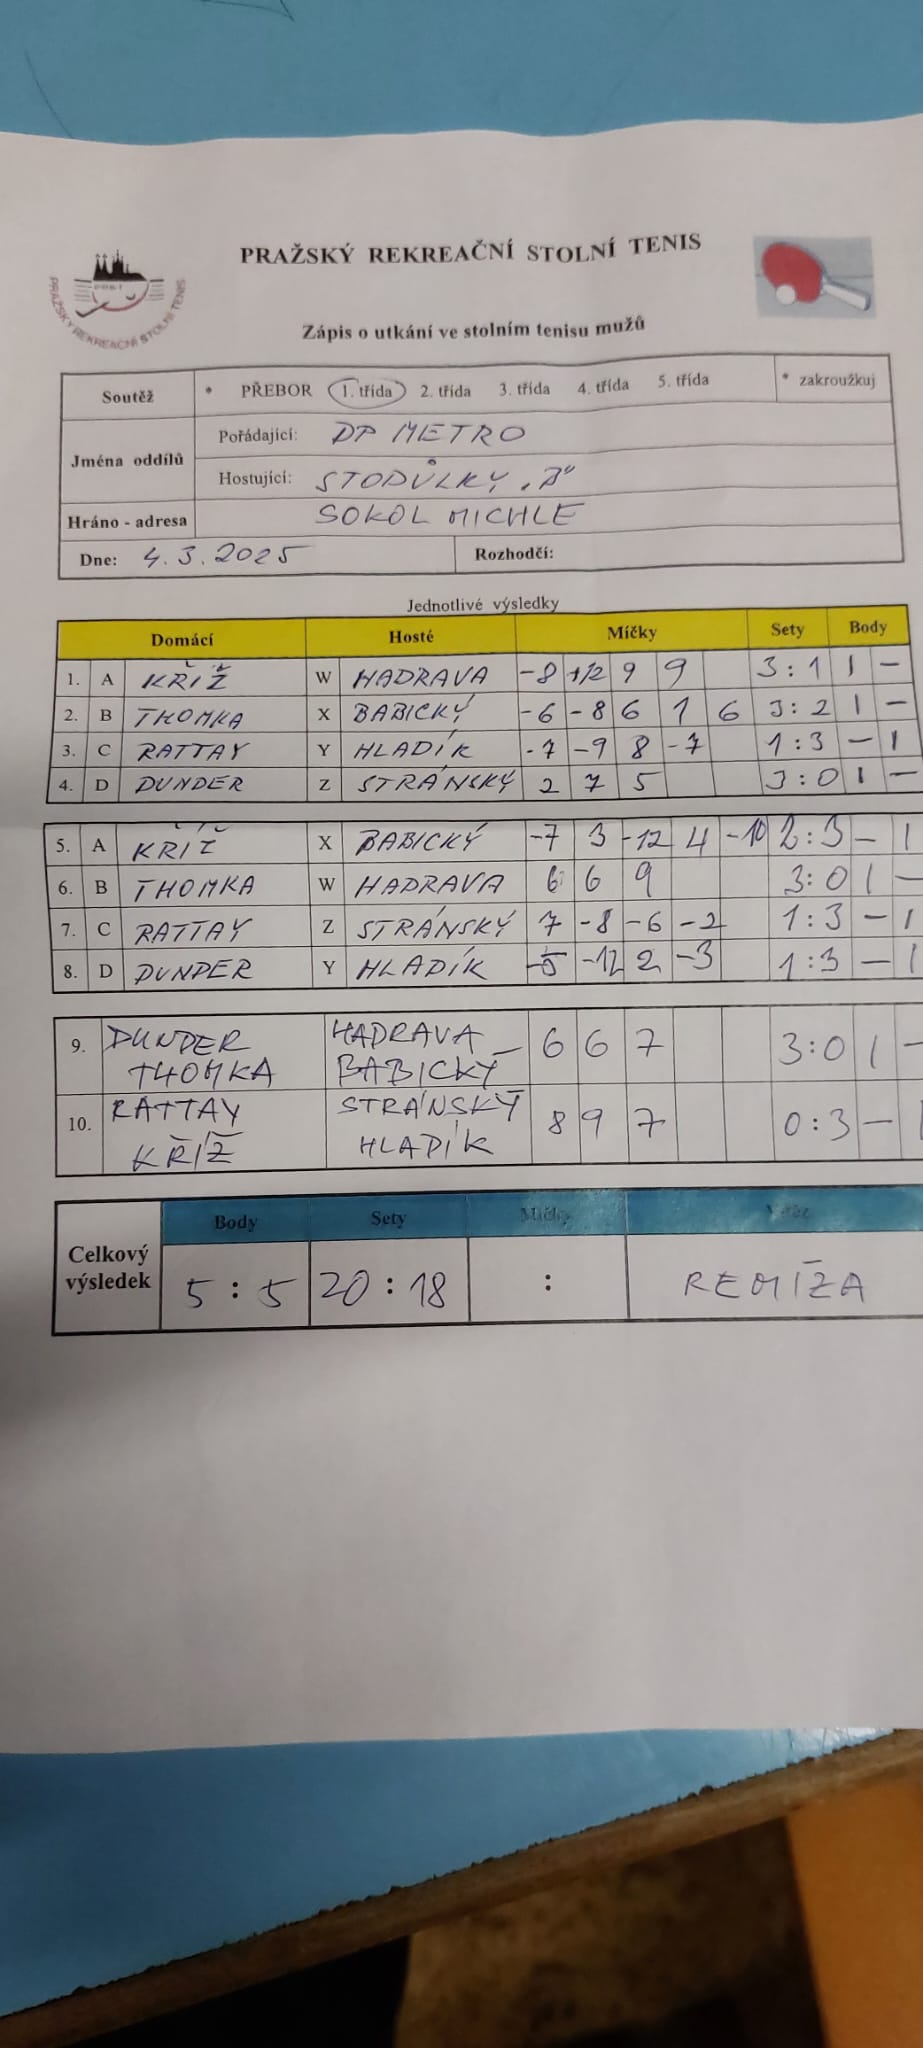 PRAŽSKÝ REKREAČNÍ STOLNÍ TENIS
PRAŽSKÝ REKREAČNÍ STOLNÍ TENIS
Zápis o utkání ve stolním tenisu mužů
Soutěž * PŘEBOR 1. třída 2. třída 3. třída 4. třída 5. třída * zakroužkuj
Jména oddílů
Pořádající: DP METRO
Hostující: STODŮLKY
Hráno - adresa SOKOL MICHLE
Dne: 4.3.2025 Rozhodčí:
Jednotlivé výsledky
Domácí Hosté Míčky Sety Body
1. A KŘÍŽ W HADRAVA -8 +12 9 9 3:1 1 -
2. B THOMKA X BABICKÝ -6 -8 6 1 6 3:2 1 -
3. C RATTAY Y HLADÍK -7 -9 8 -7 1:3 - 1
4. D DUNDER Z STRÁNSKÝ 2 7 5 3:0 1 -
5. A KŘÍŽ X BABICKÝ -7 3 -12 4 -10 2:3 - 1
6. B THOMKA W HADRAVA 6 6 9 3:0 1 -
7. C RATTAY Z STRÁNSKÝ 7 -8 -6 -2 1:3 - 1
8. D DUNDER Y HLADÍK -5 -12 2 -3 1:3 - 1
9. DUNDER HADRAVA 6 6 7 3:0 1 -
THOMKA BABICKÝ
10. RATTAY STRÁNSKÝ 8 9 7 0:3 - 1
KŘÍŽ HLADÍK
Body Sety Míčky
Celkový výsledek 5 : 5 20 : 18 : REMÍZA